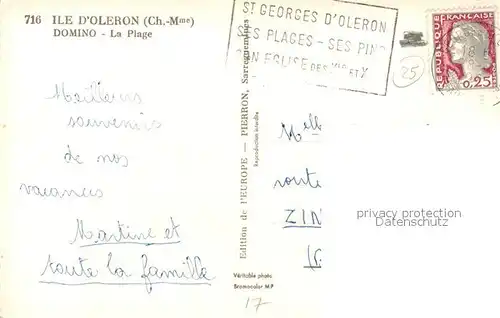 716 ILE D'OLERON (Ch.-Mme)
DOMINO - La Plage
ST GEORGES D'OLERON
SES PLAGES - SES PINS
SON EGLISE DES XIe ET X
REPUBLIQUE FRANÇAISE
0,25
25
Meilleurs
souvenirs
de nos
vacances
Martine et
toute la famille
Edition de l'EUROPE — PIERRON, Sarreguemines
Reproduction interdite
Mlle
route
ZIN
privacy protection
Datenschutz
Véritable photo
Bromocolor MP
17